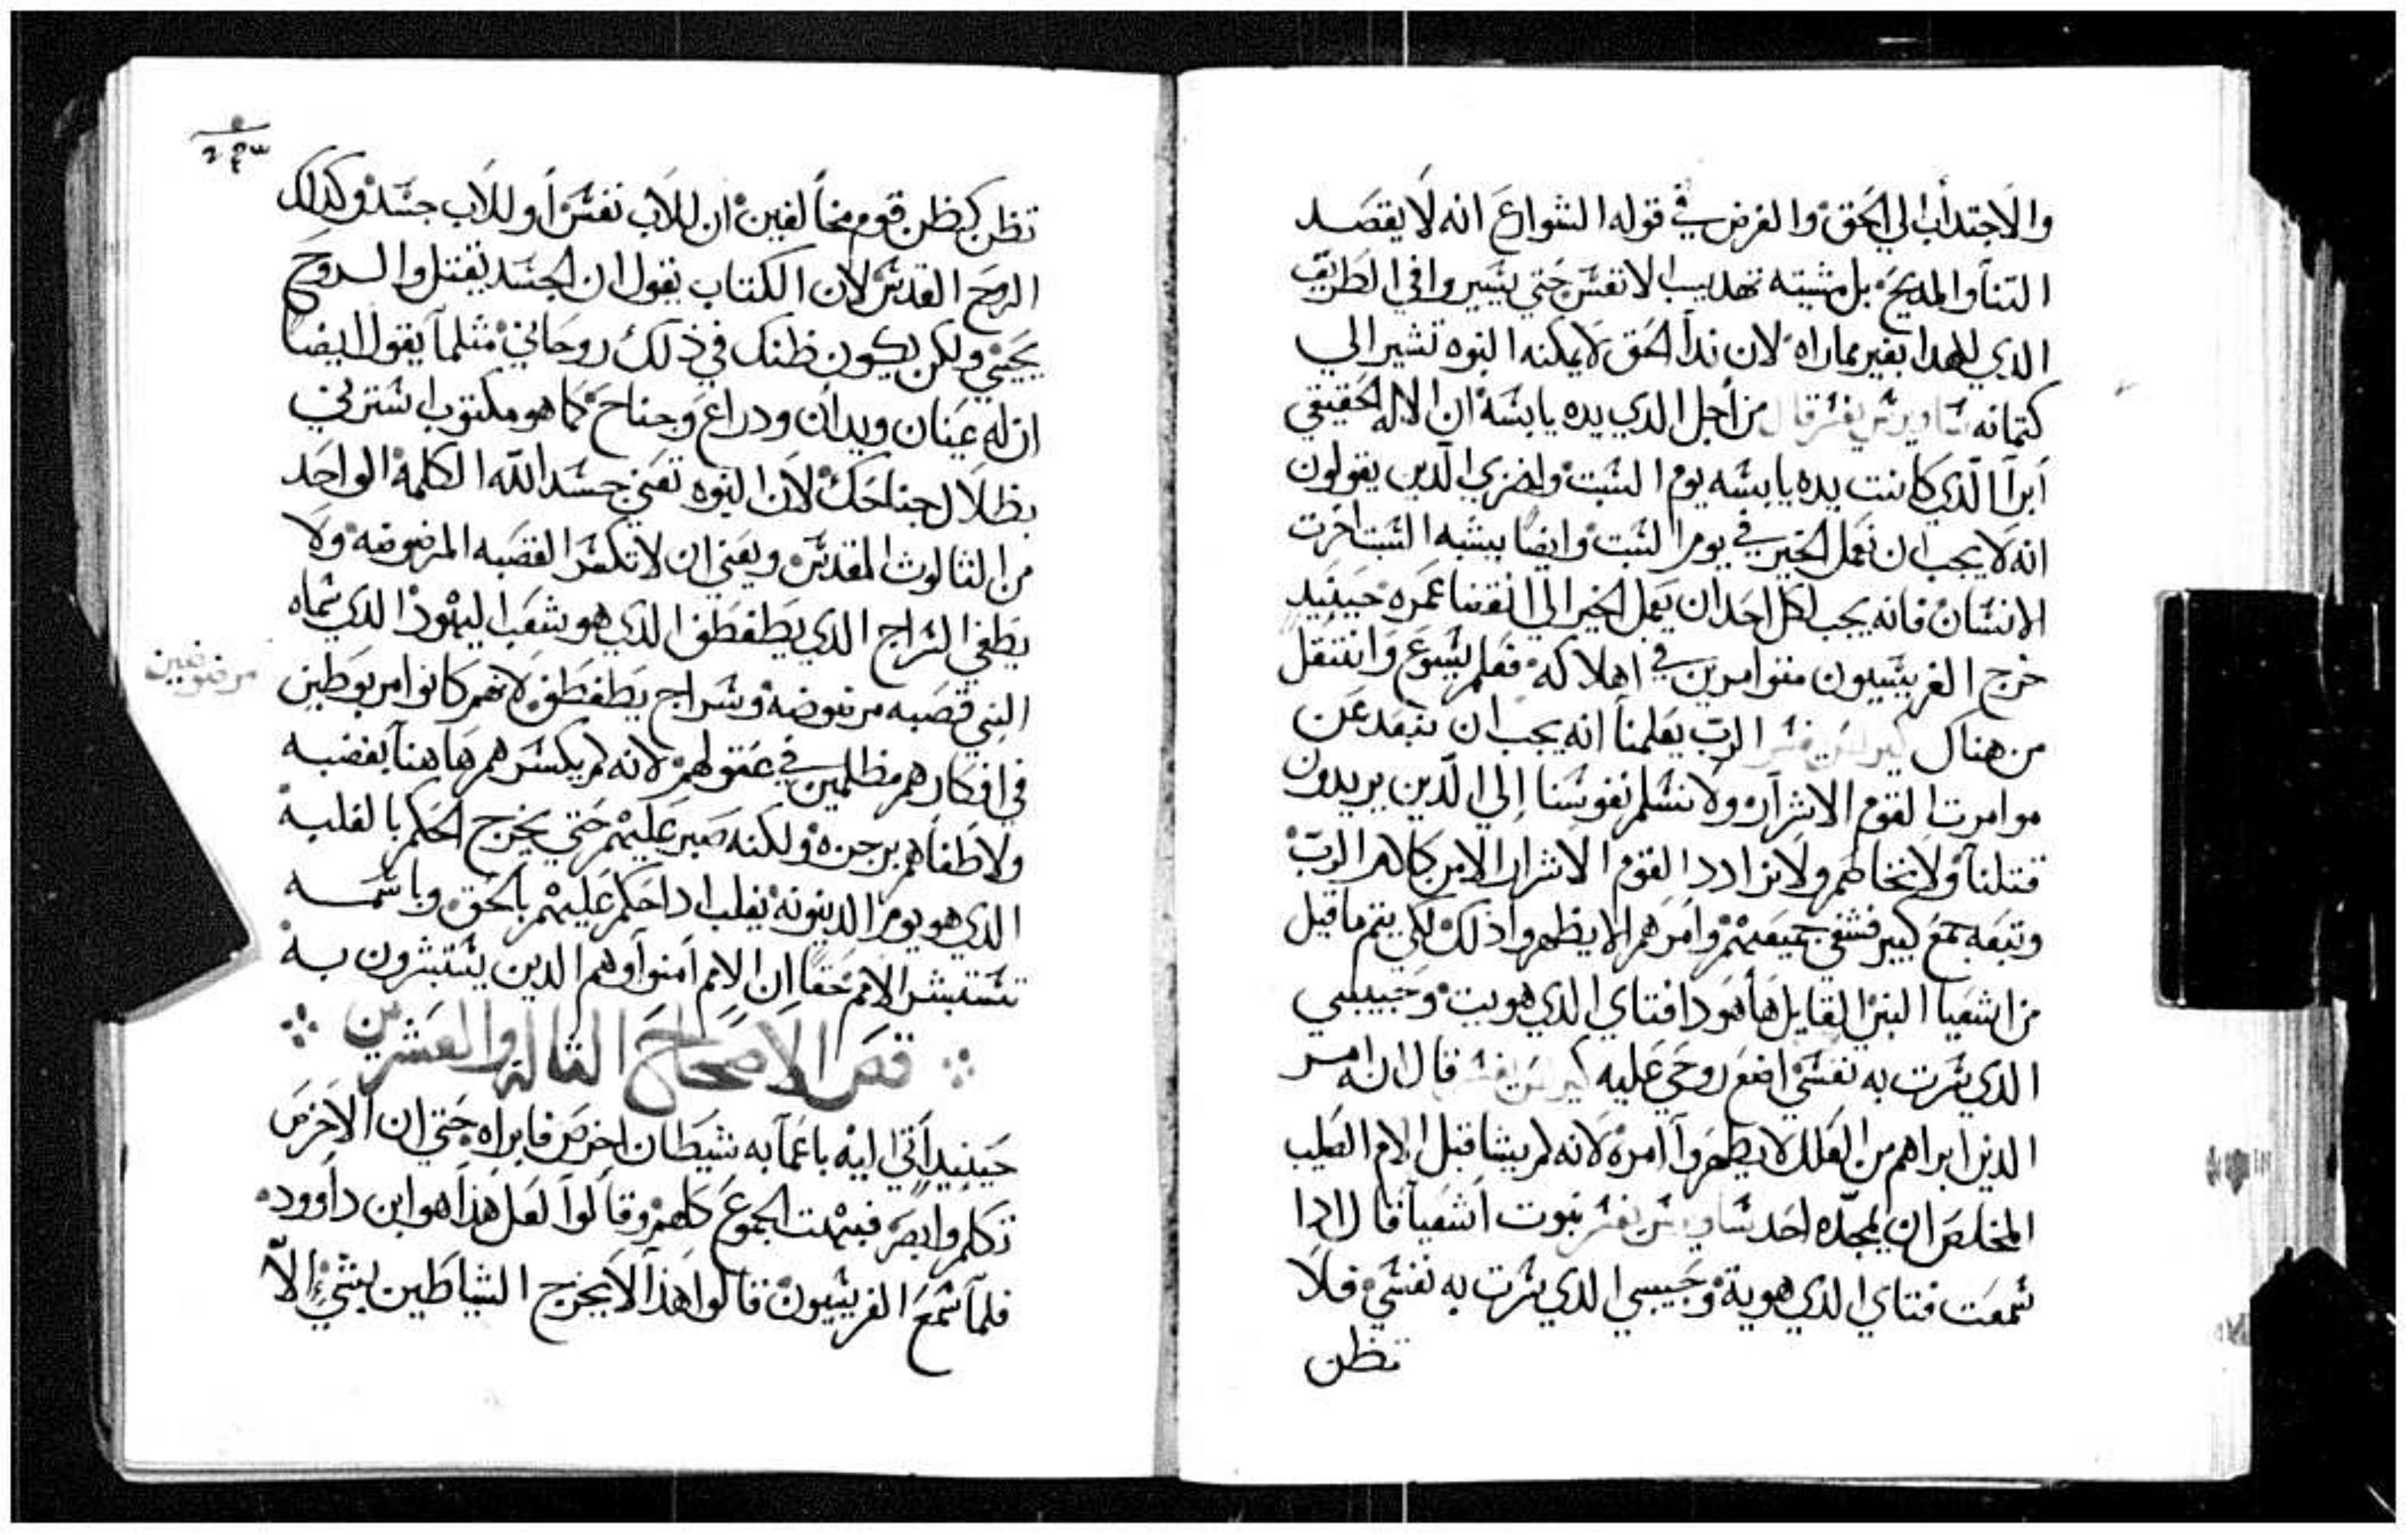 والاجتداب الي الحق والغرض في قوله الشوارع انه لا يقصد
التنا والمديح بل مشيته تهديب الانفس حتي يسيروا في الطريق
الدي للهدا بغير مماراه لان ندا الحق لا يمكنه النوه تشير الي
كتمانه ساويرس يفسر قال من أجل الدي يده يابسة ان الاله الحقيقي
أبرأ الذي كانت يده يابسه يوم السبت واخزي الذين يقولون
انه لا يجب ان نعمل الخير في يوم السبت وايضا يشبه السبت اخرت
الانسان فانه يجب لكل احد ان يعمل الخير الي انقضا عمره حينيد
خرج الفريسيون متوامرين في اهلاكه فعلم يسوع وانتقل
من هناك كيرلس يفسر الرب يعلمنا انه يجب ان نبعد عن
موامرت القوم الاشرار ولا نسلم نفوسنا إلي الذين يريدون
قتلنا ولا نخاطهم ولا نرادد القوم الاشرار الامر كله الرب
وتبعه جمع كبير فشفي جميعهم وامرهم الا يظهروا ذلك لكي يتم ما قيل
من اشعيا النبي القايل ها هودا فتاي الدي هويت وحبيبي
الدي سرت به نفسي اضع روحي عليه كيرلس يفسر قال انه امر
الدين ابراهم من العلل لا يظهروا امره لانه لم يشا قبل الام الصليب
المخلص ان يمجده احد ساويرس يفسر نبوت أشعيا قال ادا
سمعت فتاي الدي هوية وحبيبي الدي سرت به نفسي فلا
تظن
٢٤٣
تظن كظن قوم مخالفين ان للاب نفسا أو للاب جسد وكدلك
الروح القدس لان الكتاب يقول ان الجسد يقتل والروح
يحيي ولكن يكون ظنك في ذلك روحاني مثلما يقول ايضا
ان له عينان ويدان ودراع وجناح كما هو مكتوب استرني
بظلال جناحك لان النوه تعني جسد الله الكلمة الواحد
من الثالوث المقدس ويعني ان لا تكسر القصبه المرضوضه ولا
يطفي السراج الدي يطفطف الدي هو شعب اليهود الدي سماه
النبي قصبه مرضوضة وسراج يطفطف لانهم كانوا مربوطين
مرضوضين
في افكارهم مظلمين في عقولهم لانه لم يكسرهم هاهنا بغضبه
ولا طفاهم برجزه ولكنه صبر عليهم حتي يخرج الحكم بالغلبة
الدي هو يوم الدينونة يغلب ادا حكم عليهم بالحق وباسمه
تستبشر الامم حقا ان الامم أمنوا وهم الدين يستبشرون به
فص الاصحاح الثالة والعشرين
حينيد أتي اليه باعما به شيطان اخرص فابراه حتي ان الاخرص
تكلم وابصر فبهت الجموع كلهم وقالوا لعل هذا هو ابن داوود
فلما سمع الفريسيون قالوا هذا لا يخرج الشياطين بشيء الا